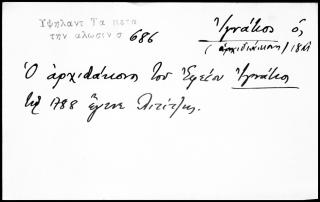 Υψηλαντ Τα μετα
την αλωσιν σ 686
Ἰγνάτιος ὁ
(ἀρχιδιάκονος) 18
Ὁ ἀρχιδιάκονος τοῦ Ἐφέσου Ἰγνάτιος
τῷ 1788 ἔγινε Λιτίτζης.